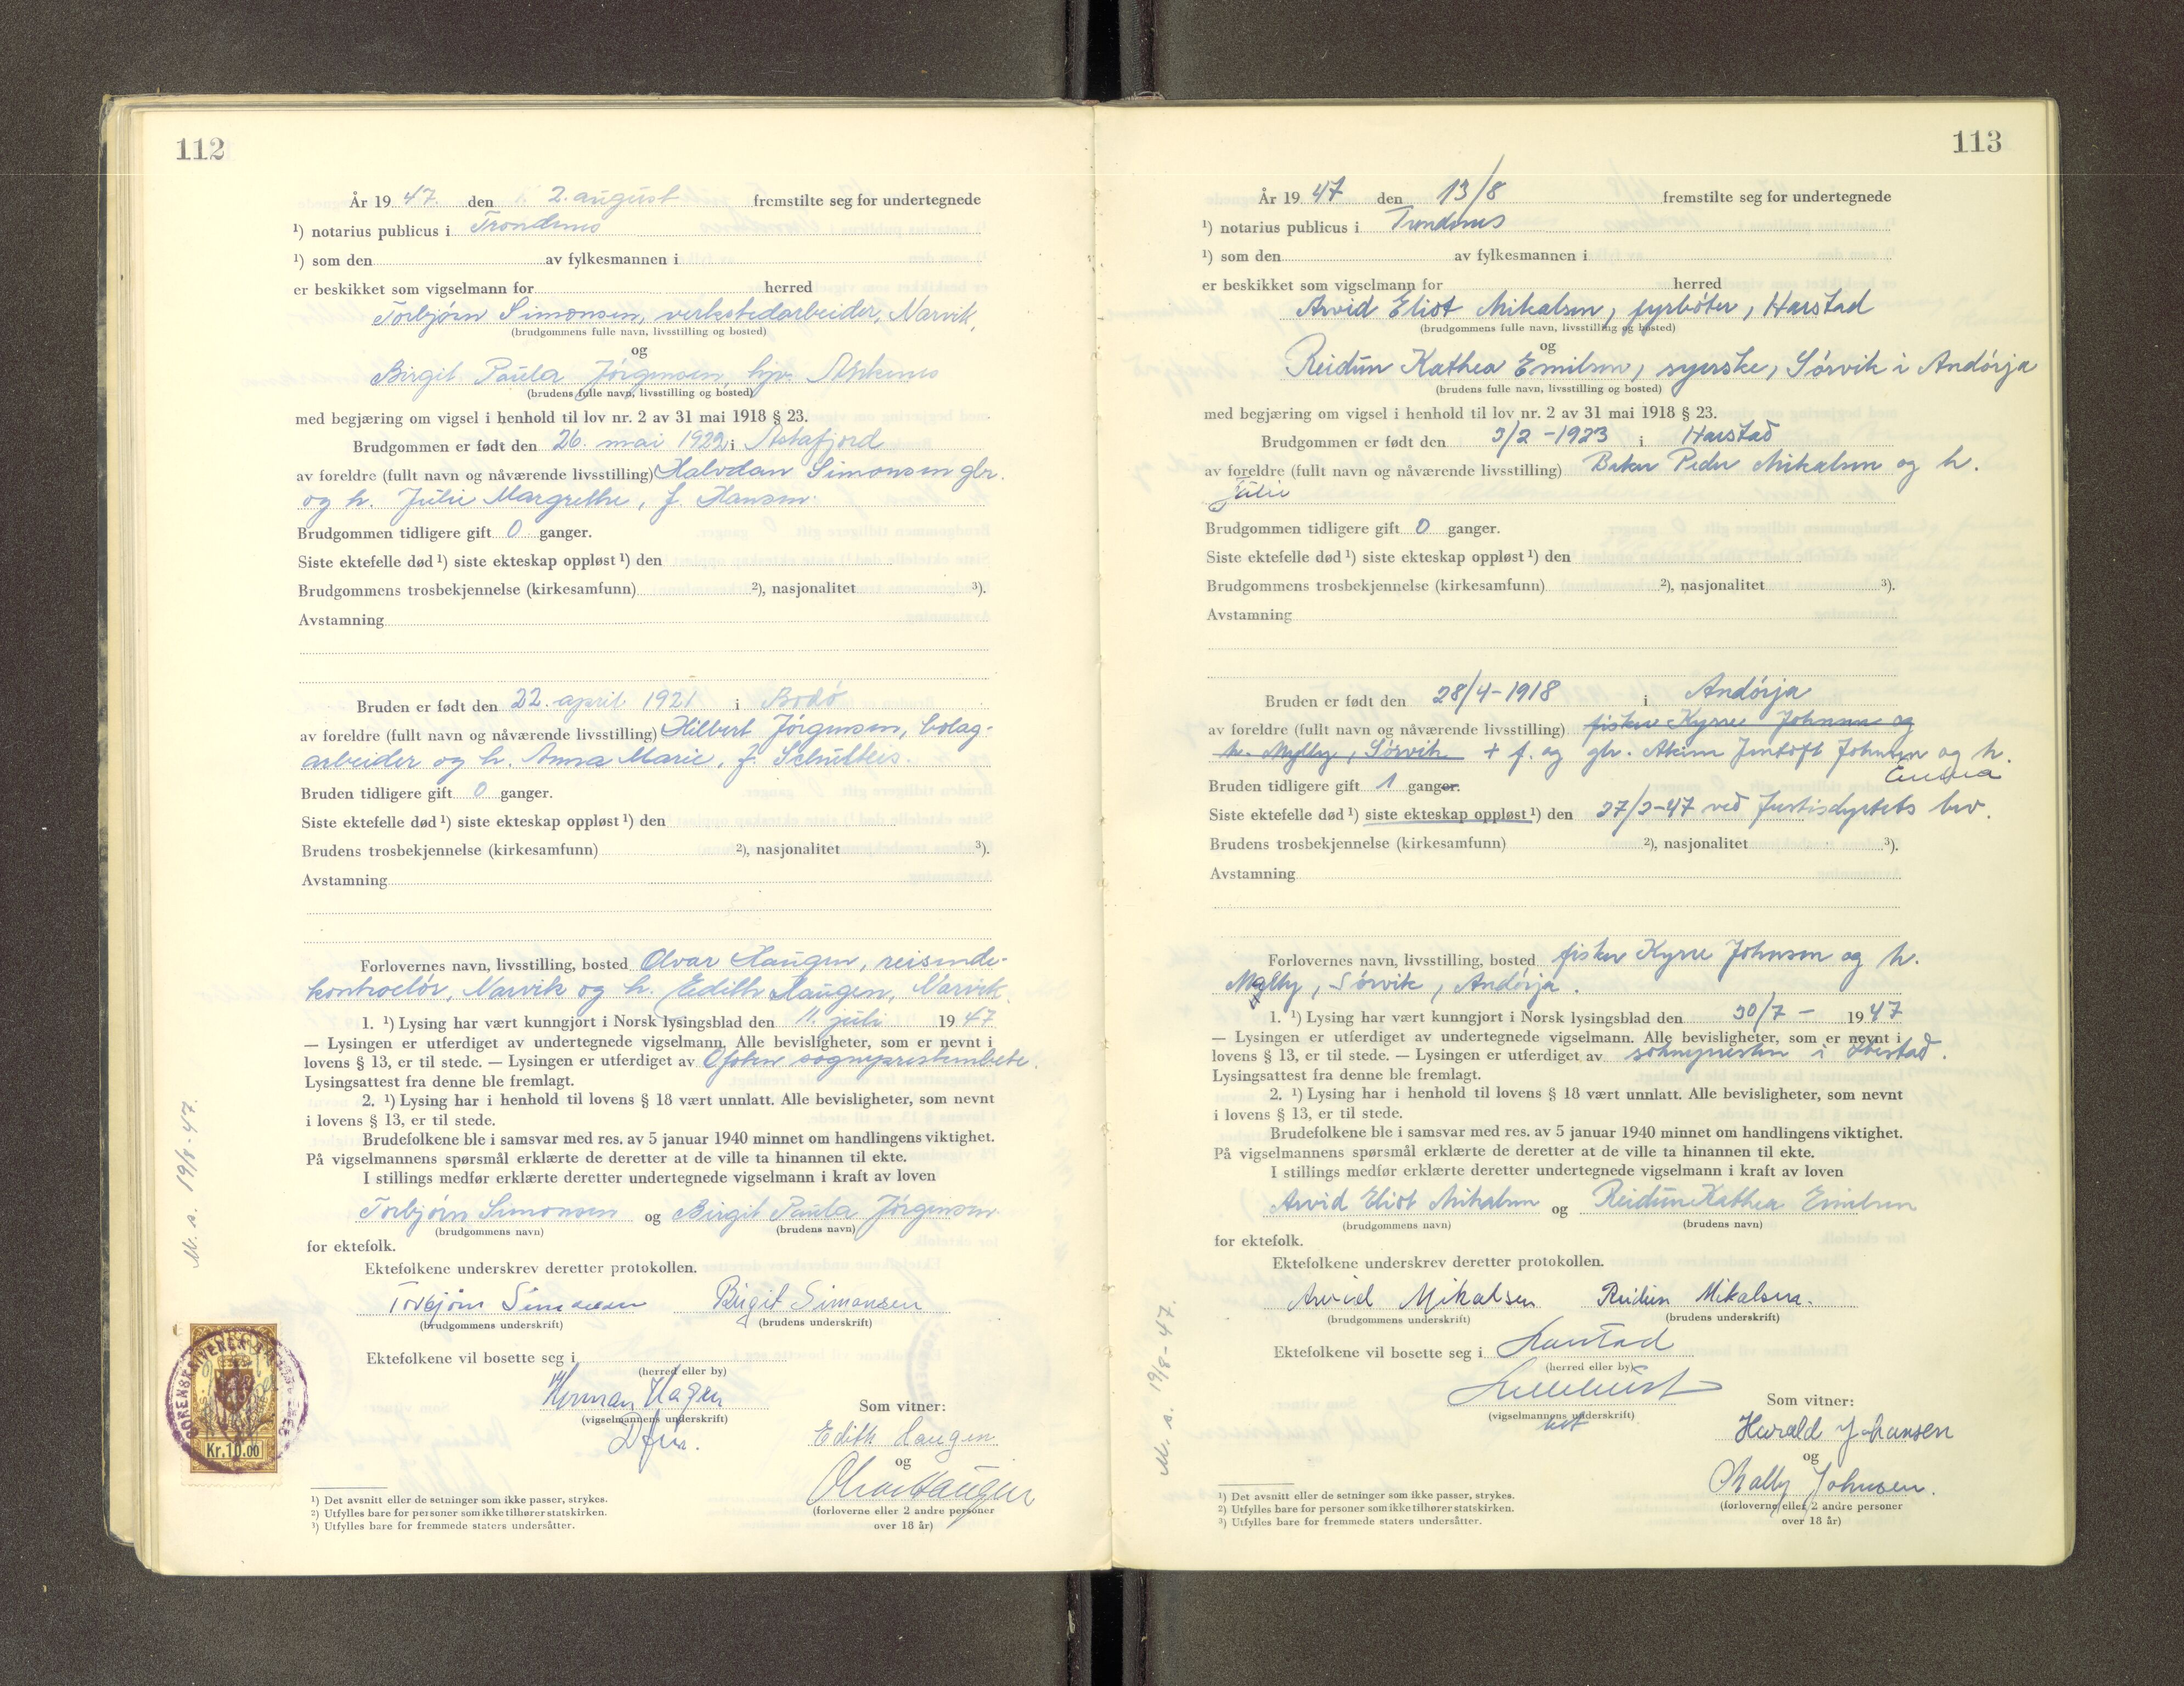 112
År 19 47. den 2. august fremstilte seg for undertegnede
¹) notarius publicus i Trondenes
¹) som den av fylkesmannen i
er beskikket som vigselmann for herred
Torbjørn Simonsen, verkstedarbeider, Narvik,
(brudgommens fulle navn, livsstilling og bosted)
og
Birgit Paula Jörgensen, hjv. Ankenes
(brudens fulle navn, livsstilling og bosted)
med begjæring om vigsel i henhold til lov nr. 2 av 31 mai 1918 § 23.
Brudgommen er født den 26. mai 1922 i Astafjord
av foreldre (fullt navn og nåværende livsstilling) Halvdan Simonsen gbr.
og h. Julie Margrethe, f. Hansen.
Brudgommen tidligere gift 0 ganger.
Siste ektefelle død ¹) siste ekteskap oppløst ¹) den
Brudgommens trosbekjennelse (kirkesamfunn) ²), nasjonalitet ³).
Avstamning
Bruden er født den 22. april 1921 i Bodö
av foreldre (fullt navn og nåværende livsstilling) Hilbert Jörgensen, bolag-
arbeider og h. Anna Marie, f. Schulteis.
Bruden tidligere gift 0 ganger.
Siste ektefelle død ¹) siste ekteskap oppløst ¹) den
Brudens trosbekjennelse (kirkesamfunn) ²), nasjonalitet ³).
Avstamning
Forlovernes navn, livsstilling, bosted Olvar Haugen, reisende-
kontroelör, Narvik og h. Edith Haugen, Narvik.
1. ¹) Lysing har vært kunngjort i Norsk lysingsblad den 11. juli 19 47
— Lysingen er utferdiget av undertegnede vigselmann. Alle bevisligheter, som er nevnt i
lovens § 13, er til stede. — Lysingen er utferdiget av Ofoten sogneprestembete.
Lysingsattest fra denne ble fremlagt.
2. ¹) Lysing har i henhold til lovens § 18 vært unnlatt. Alle bevisligheter, som nevnt
i lovens § 13, er til stede.
Brudefolkene ble i samsvar med res. av 5 januar 1940 minnet om handlingens viktighet.
På vigselmannens spørsmål erklærte de deretter at de ville ta hinannen til ekte.
I stillings medfør erklærte deretter undertegnede vigselmann i kraft av loven
Torbjørn Simonsen og Birgit Paula Jörgensen
(brudgommens navn) (brudens navn)
for ektefolk.
Ektefolkene underskrev deretter protokollen.
Torbjörn Simonsen Birgit Simonsen
(brudgommens underskrift) (brudens underskrift)
Ektefolkene vil bosette seg i
(herred eller by)
Herman Hagen
(vigselmannens underskrift)
Dfm.
Som vitner:
Edith Haugen
og
Olvar Haugen
(forloverne eller 2 andre personer
over 18 år)
M. s. 19/8-47.
SORENSKRIVEREN
Kr. 10.00
¹) Det avsnitt eller de setninger som ikke passer, strykes.
²) Utfylles bare for personer som ikke tilhører statskirken.
³) Utfylles bare for fremmede staters undersåtter.
113
År 19 47 den 13/8 fremstilte seg for undertegnede
¹) notarius publicus i Trondenes
¹) som den av fylkesmannen i
er beskikket som vigselmann for herred
Arvid Eliot Mikalsen, fyrböter, Harstad
(brudgommens fulle navn, livsstilling og bosted)
og
Reidun Kathea Emilsen, syerske, Sörvik i Andörja
(brudens fulle navn, livsstilling og bosted)
med begjæring om vigsel i henhold til lov nr. 2 av 31 mai 1918 § 23.
Brudgommen er født den 3/2-1923 i Harstad
av foreldre (fullt navn og nåværende livsstilling) Baker Peder Mikalsen og h.
Julie
Brudgommen tidligere gift 0 ganger.
Siste ektefelle død ¹) siste ekteskap oppløst ¹) den
Brudgommens trosbekjennelse (kirkesamfunn) ²), nasjonalitet ³).
Avstamning
Bruden er født den 28/4-1918 i Andörja
av foreldre (fullt navn og nåværende livsstilling) fisker Kyrre Johnsen og
h. Mglby, Sörvik + f. og gbr. Jentoft Johnsen og h.
Emma
Bruden tidligere gift 1 ganger.
Siste ektefelle død ¹) siste ekteskap oppløst ¹) den 27/2-47 ved Justisdeptets brev.
Brudens trosbekjennelse (kirkesamfunn) ²), nasjonalitet ³).
Avstamning
Forlovernes navn, livsstilling, bosted fisker Kyrre Johnsen og h.
Mally, Sörvik, Andörja.
1. ¹) Lysing har vært kunngjort i Norsk lysingsblad den 30/7 – 19 47
— Lysingen er utferdiget av undertegnede vigselmann. Alle bevisligheter, som er nevnt i
lovens § 13, er til stede. — Lysingen er utferdiget av soknepresten i Ibestad.
Lysingsattest fra denne ble fremlagt.
2. ¹) Lysing har i henhold til lovens § 18 vært unnlatt. Alle bevisligheter, som nevnt
i lovens § 13, er til stede.
Brudefolkene ble i samsvar med res. av 5 januar 1940 minnet om handlingens viktighet.
På vigselmannens spørsmål erklærte de deretter at de ville ta hinannen til ekte.
I stillings medfør erklærte deretter undertegnede vigselmann i kraft av loven
Arvid Eliot Mikalsen og Reidun Kathea Emilsen
(brudgommens navn) (brudens navn)
for ektefolk.
Ektefolkene underskrev deretter protokollen.
Arvid Mikalsen Reidun Mikalsen.
(brudgommens underskrift) (brudens underskrift)
Ektefolkene vil bosette seg i Harstad
(herred eller by)
(vigselmannens underskrift)
Som vitner:
Harald Johansen
og
Mally Johnsen.
(forloverne eller 2 andre personer
over 18 år)
M. s. 19/8-47.
¹) Det avsnitt eller de setninger som ikke passer, strykes.
²) Utfylles bare for personer som ikke tilhører statskirken.
³) Utfylles bare for fremmede staters undersåtter.